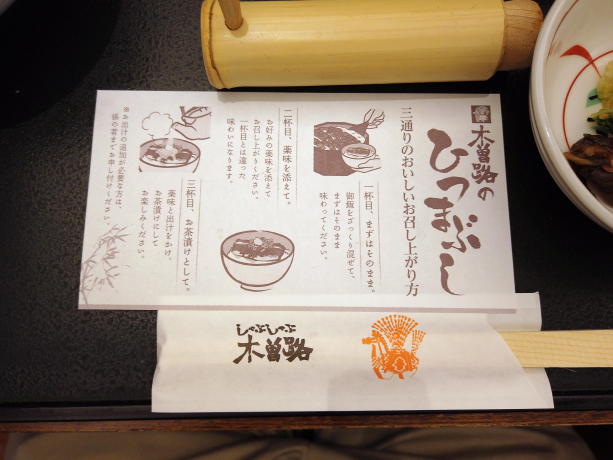 木曽路の
ひつまぶし
三通りのおいしいお召し上がり方
一杯目、まずはそのまま。
御飯をざっくり混ぜて、
まずはそのまま
味わってください。
二杯目、薬味を添えて。
お好みの薬味を添えて
お召し上がりください。
一杯目とは違った
味わいになります。
三杯目、お茶漬けとして。
薬味と出汁をかけ、
お茶漬けにして
お楽しみください。
※お出汁の追加が必要な方は、
係の者までお申し付けください。
しゃぶしゃぶ
木曽路